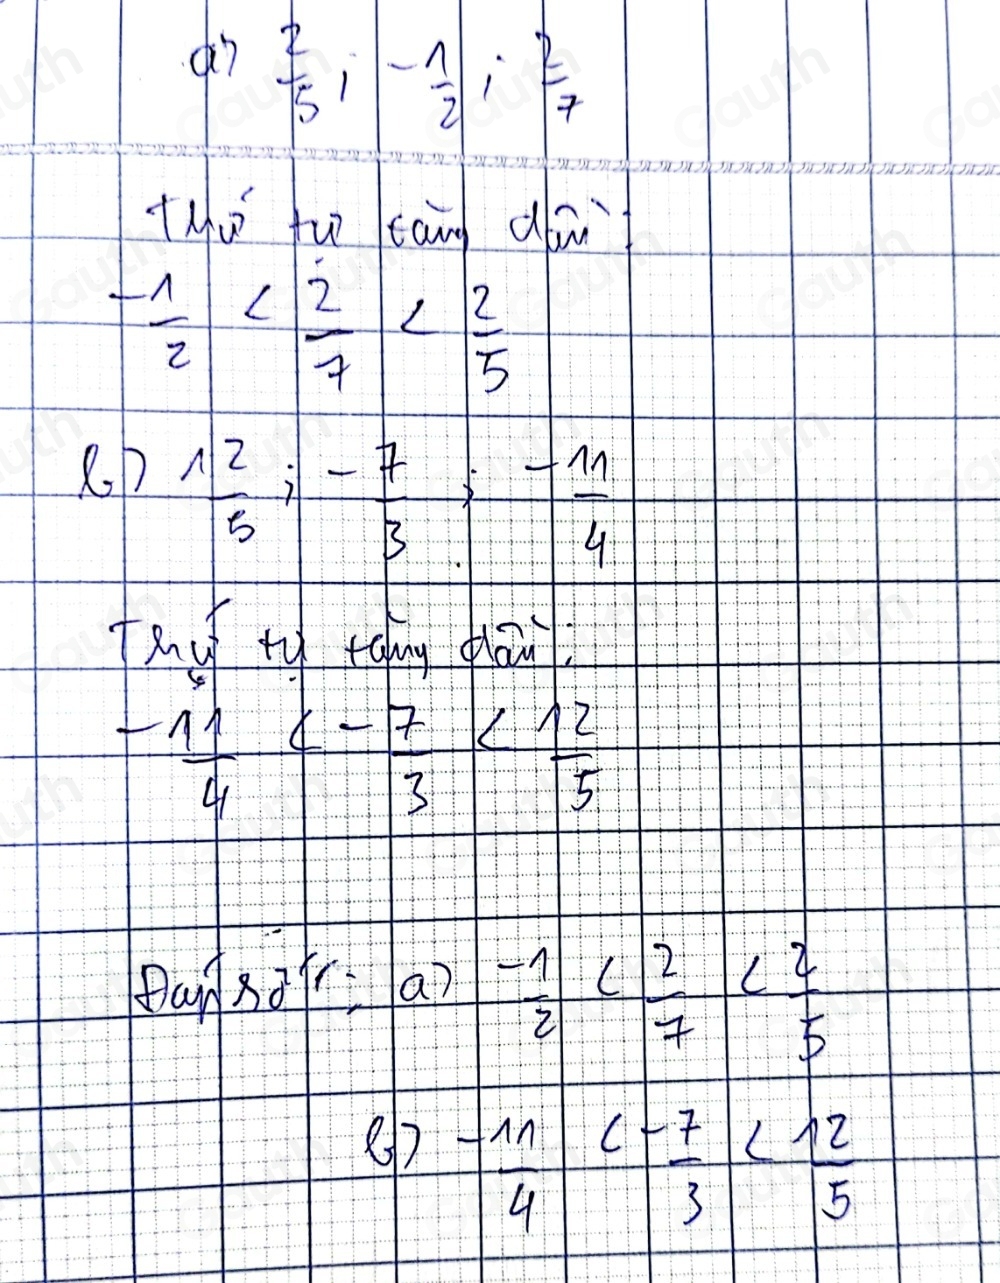 a) 2/5 ; -1/2 ; 2/7
Thứ tự tăng dần:
-1/2 < 2/7 < 2/5
b) 12/5 ; -7/3 ; -11/4
Thứ tự tăng dần:
-11/4 < -7/3 < 12/5
Đáp số: a) -1/2 < 2/7 < 2/5
b) -11/4 < -7/3 < 12/5